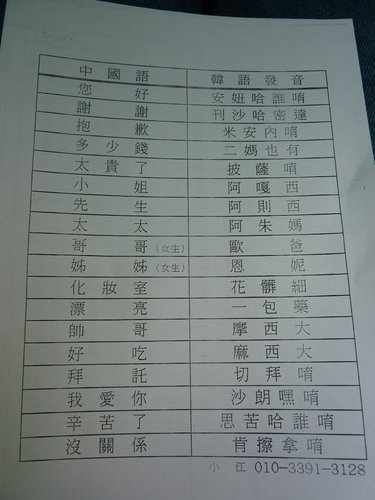 中國語 韓語發音
您好 安妞哈誰唷
謝謝 刊沙哈密達
抱歉 米安內唷
多少錢 二媽也有
太貴了 披薩唷
小姐 阿嘎西
先生 阿則西
太太 阿朱媽
哥哥(女生) 歐爸
姊姊(女生) 恩妮
化妝室 花髒細
漂亮 一包藥
帥哥 摩西大
好吃 麻西大
拜託 切拜唷
我愛你 沙朗嘿唷
辛苦了 思苦哈誰唷
沒關係 肯擦拿唷
小江 010-3391-3128